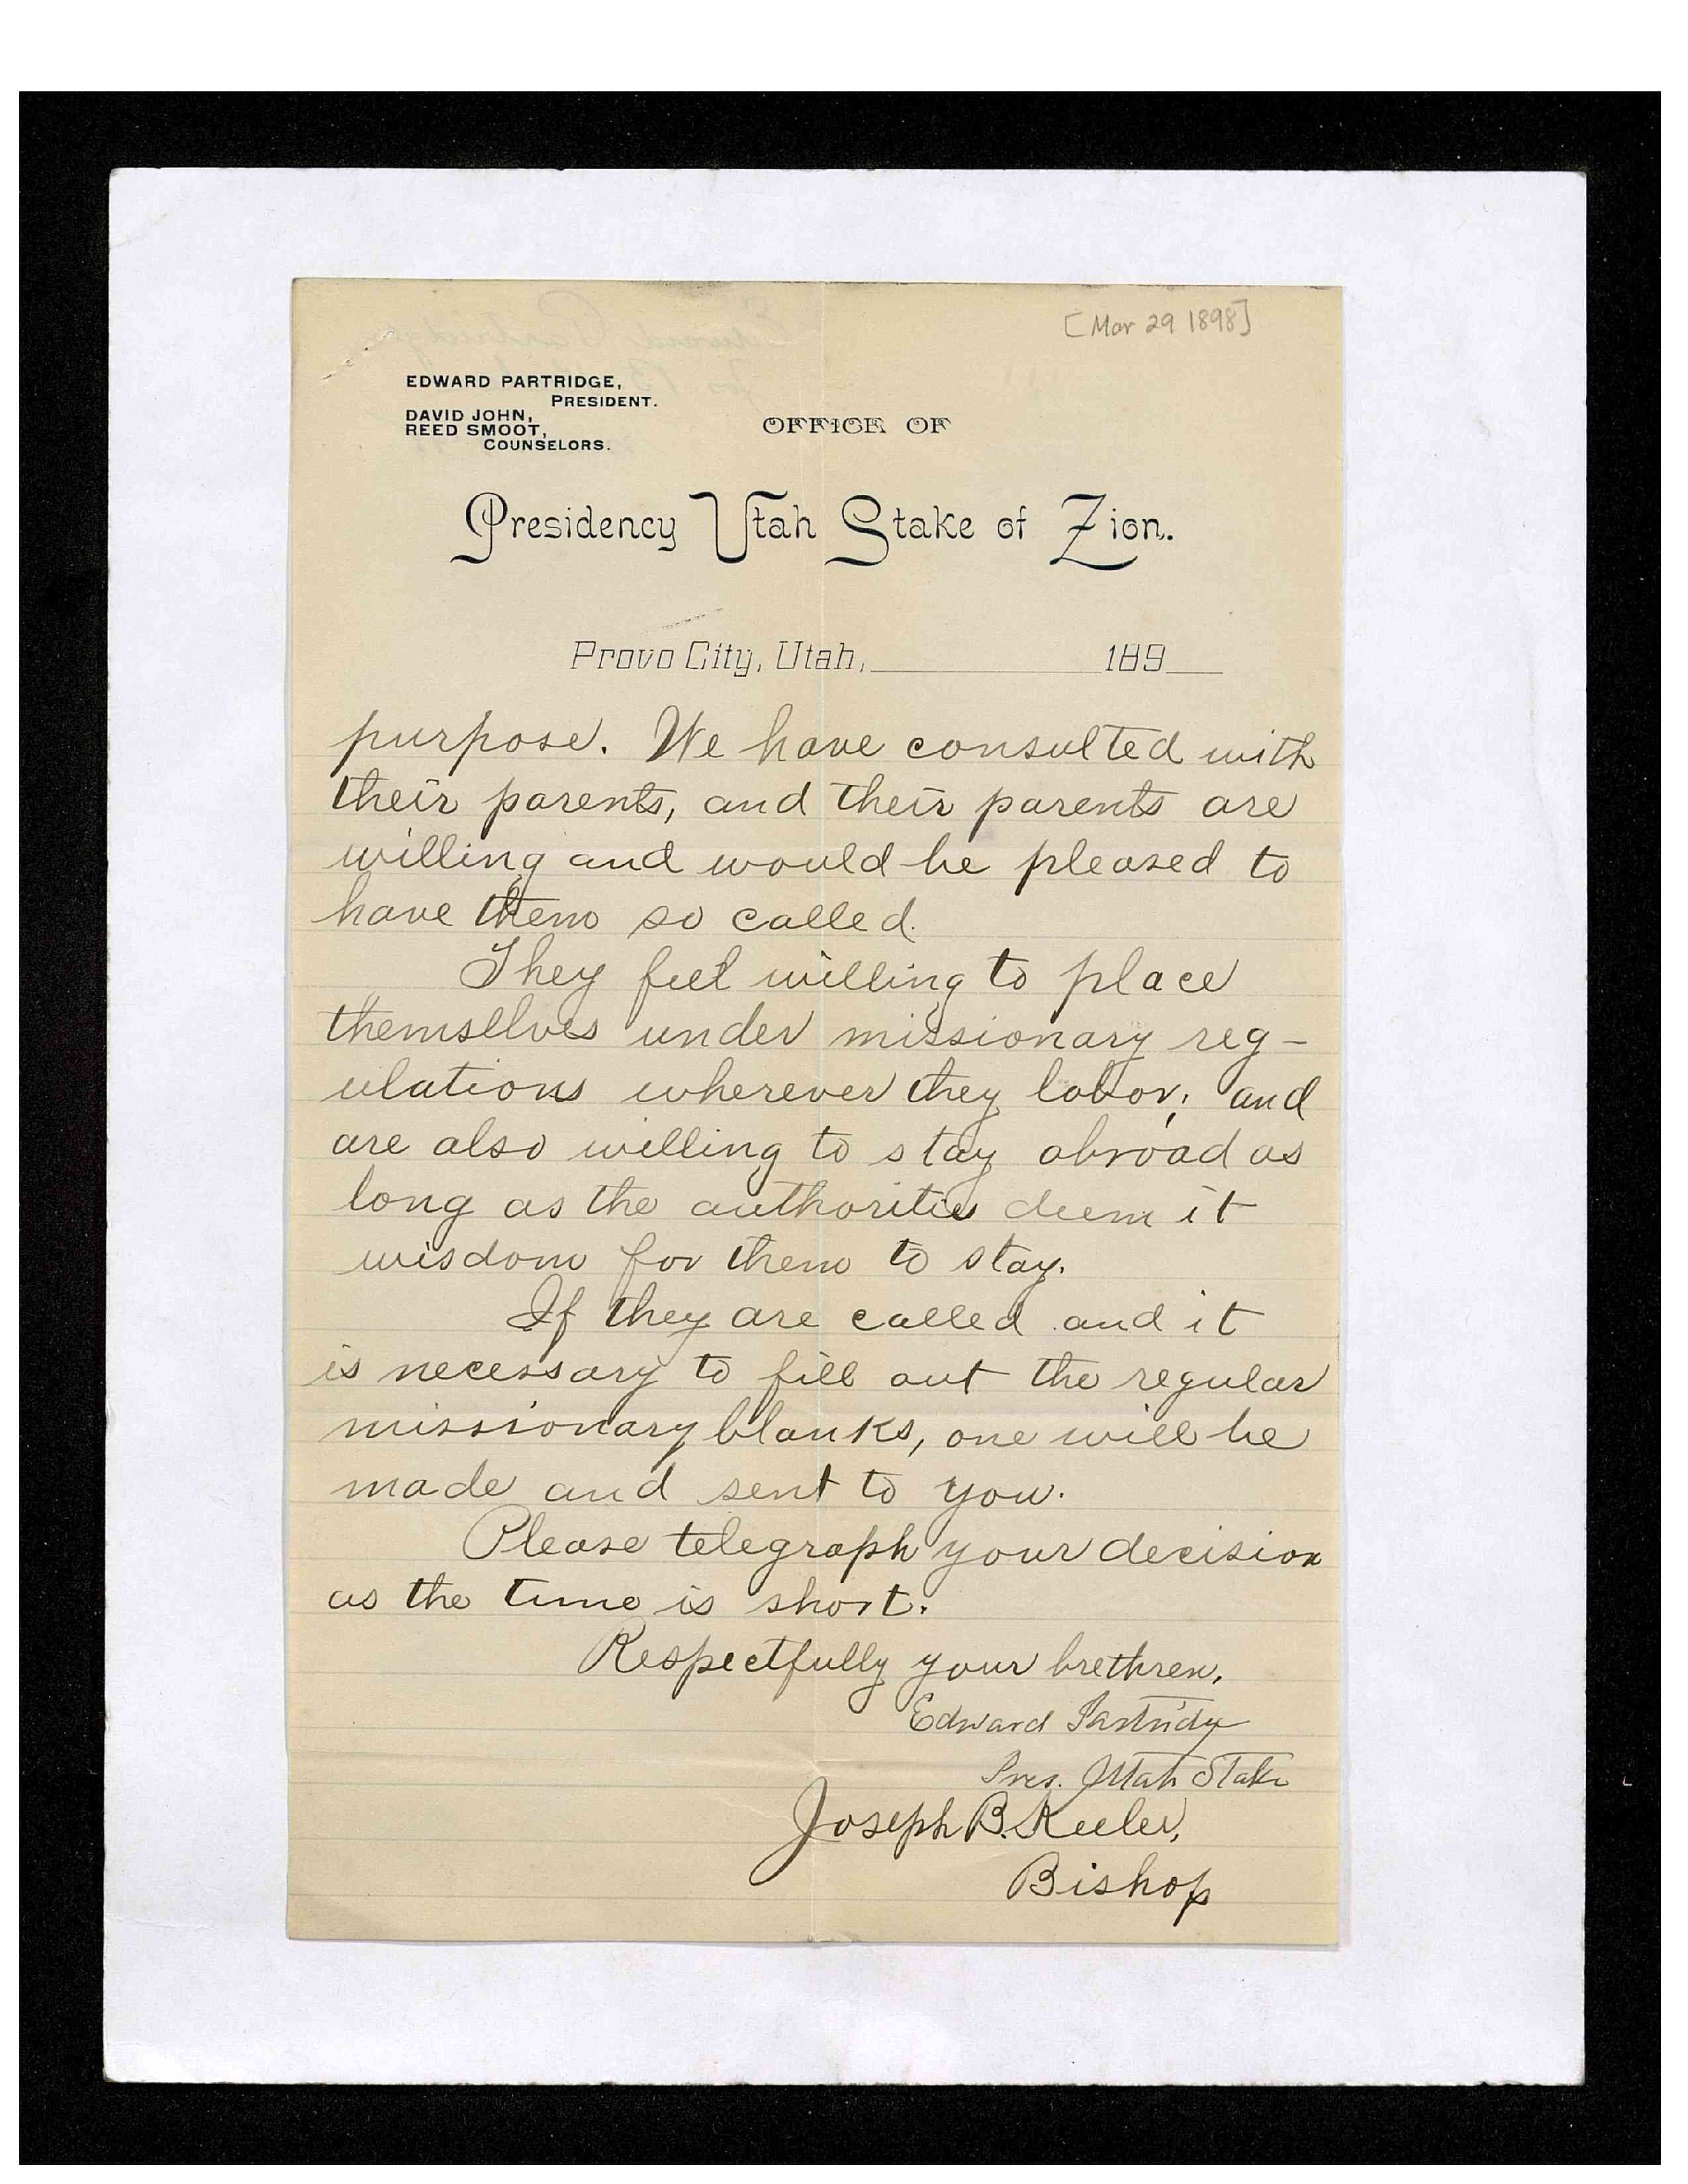 [Mar 29 1898]
EDWARD PARTRIDGE,
PRESIDENT.
DAVID JOHN,
REED SMOOT,
COUNSELORS.
OFFICE OF
Presidency Utah Stake of Zion.
Provo City, Utah, 189
purpose. We have consulted with
their parents, and their parents are
willing and would be pleased to
have them so called.
They feel willing to place
themselves under missionary reg-
ulations wherever they labor; and
are also willing to stay abroad as
long as the authorities deem it
wisdom for them to stay.
If they are called and it
is necessary to fill out the regular
missionary blanks, one will be
made and sent to you.
Please telegraph your decision
as the time is short.
Respectfully your brethren,
Edward Partridge
Pres. Utah Stake
Joseph B. Keeler,
Bishop